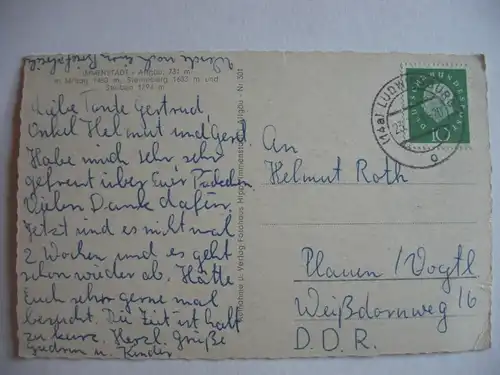 Werde noch einen Brief schreiben
IMMENSTADT - Allgäu, 731 m
m. Mittag 1452 m, Steineberg 1683 m und
Stuiben 1796 m
Liebe Tante Gertrud,
Onkel Helmut und Gerd.
Habe mich sehr sehr
gefreut über Euer Päckchen
Vielen Dank dafür.
Jetzt sind es nicht mal
2 Wochen und es geht
schon wieder ab. Hätte
Euch sehr gerne mal
besucht. Die Zeit ist halt
zu kurz. Herzl. Grüße
Gudrun u. Kinder
Aufnahme u. Verlag Fotohaus Hipp, Immenstadt/Allgäu - Nr. 501
(14a) LUDWIGSBURG
23
10
An
Helmut Roth
Plauen/Vogtl
Weißdornweg 16
D.D.R.